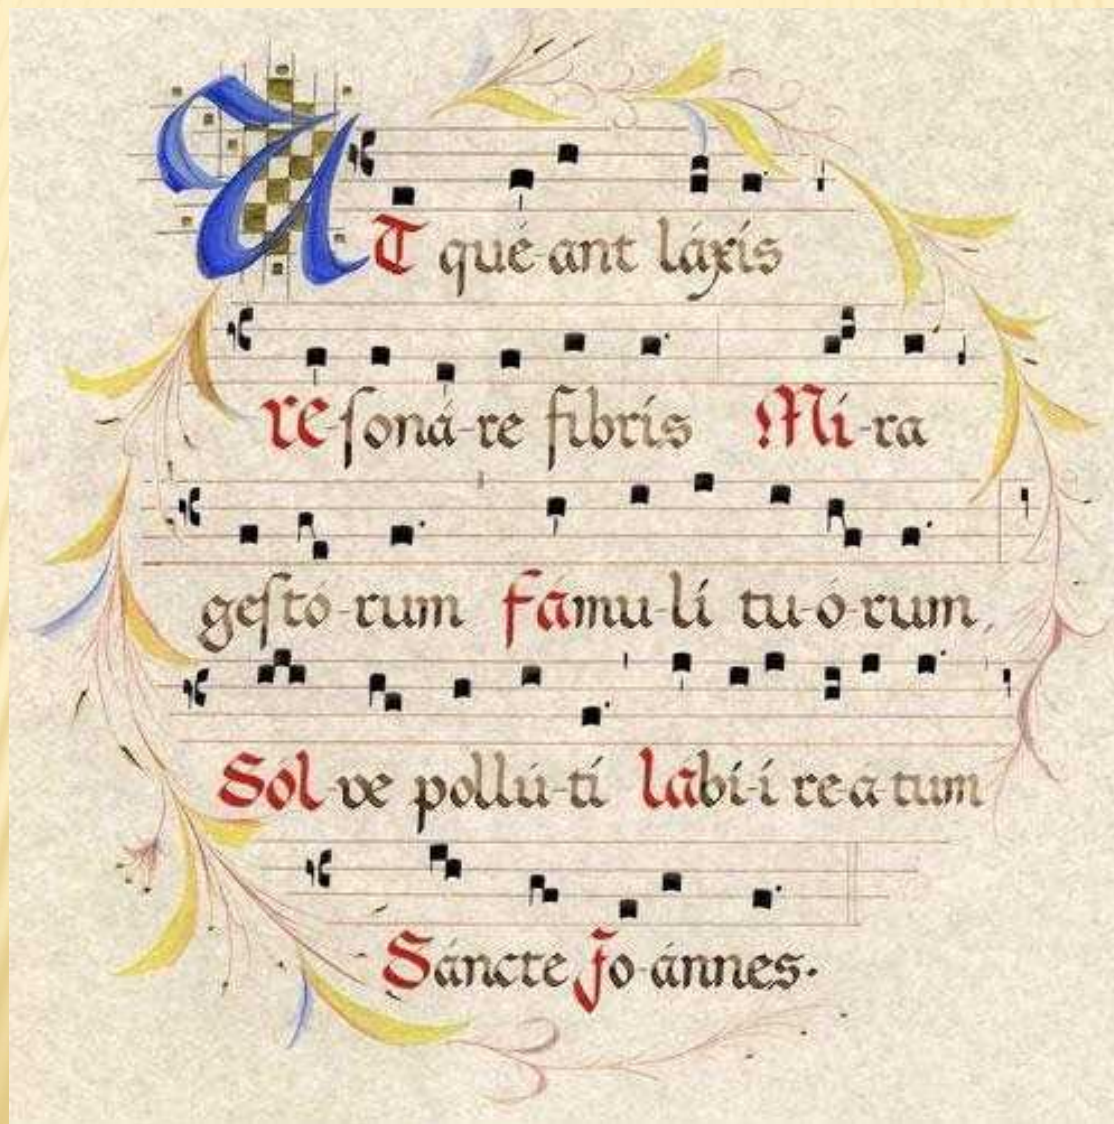 UT qué-ant láxis
re-ſoná-re fibris Mi-ra
geſtó-rum fámu-li tu-ó-rum,
Sol-ve pollú-ti labí-i re-á-tum
Sáncte Jo-ánnes.